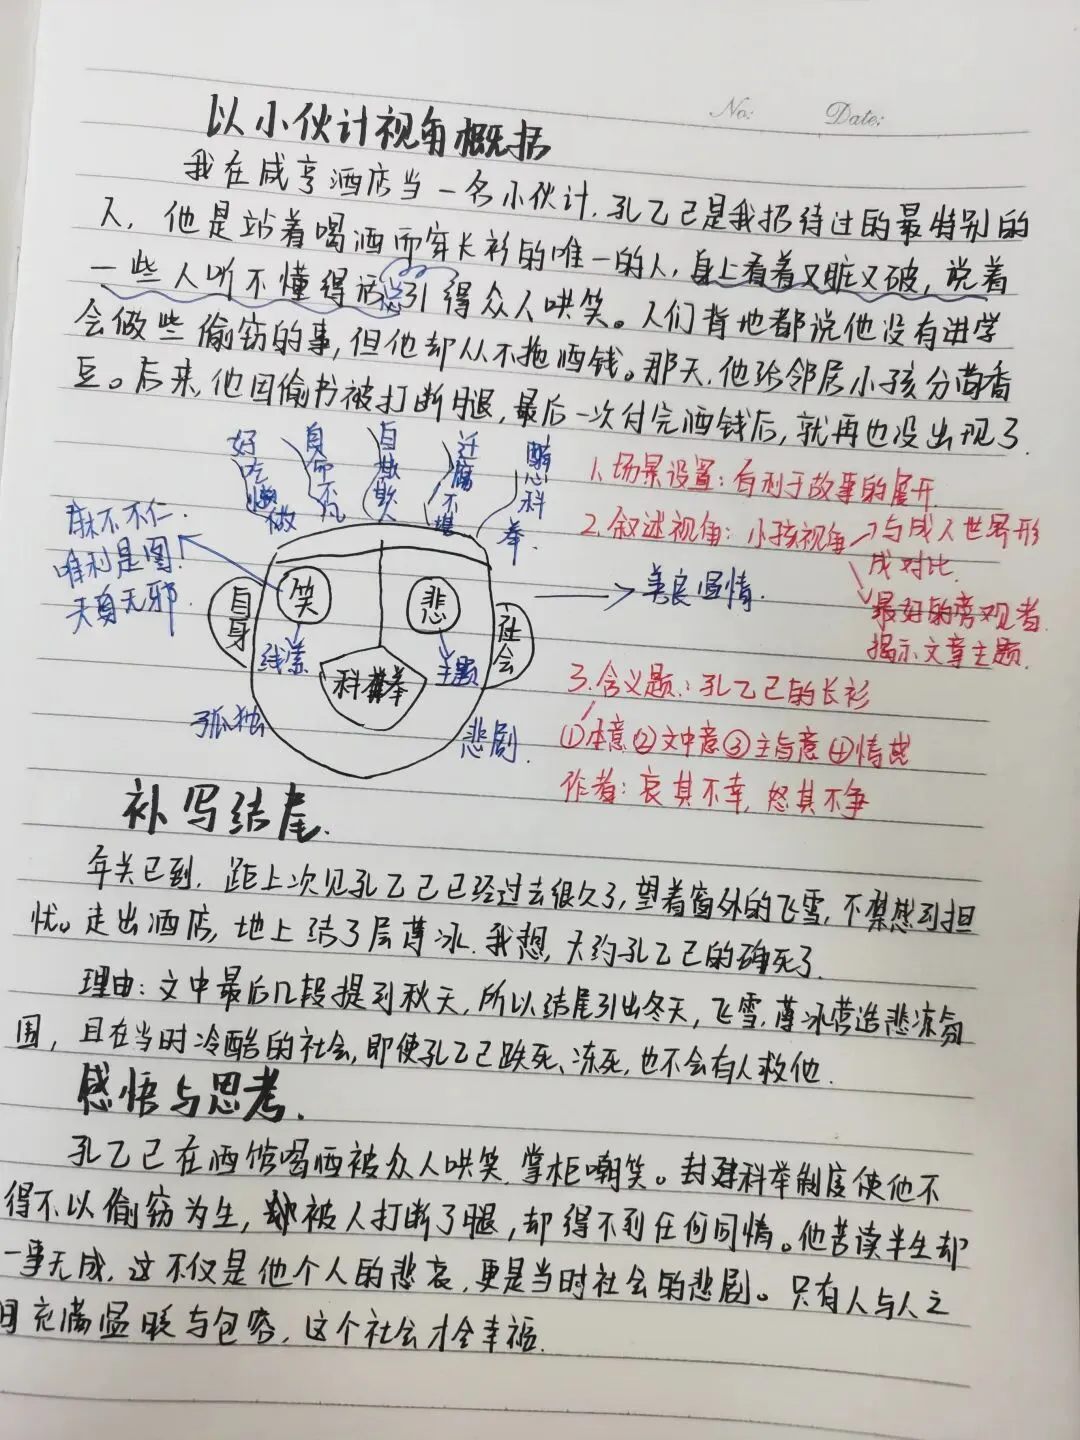 No: Date:
以小伙计视角概括
我在咸亨酒店当一名小伙计,孔乙己是我招待过的最特别的
人,他是站着喝酒而穿长衫的唯一的人,身上看着又脏又破,说着
一些人听不懂得话总引得众人哄笑。人们背地都说他没有进学
会做些偷窃的事,但他却从不拖酒钱。那天,他给邻居小孩分茴香
豆。后来,他因偷书被打断腿,最后一次付完酒钱后,就再也没出现了.
好吃懒做
自命不凡
自欺欺人
迂腐不堪
醉心科举.
麻木不仁.
唯利是图.
天真无邪.
自身
笑
悲
社会
线索
主题
科举
孤独
悲剧.
善良温情.
1.场景设置:有利于故事的展开
2.叙述视角:小孩视角
与成人世界形
成对比.
最好的旁观者.
揭示文章主题.
3.含义题:孔乙己的长衫
①本意②文中意③主旨意④情感
作者:哀其不幸,怒其不争
补写结尾.
年关已到,距上次见孔乙己已经过去很久了,望着窗外的飞雪,不禁感到担
忧。走出酒店,地上结了层薄冰.我想,大约孔乙己的确死了.
理由:文中最后几段提到秋天,所以结尾引出冬天,飞雪,薄冰营造悲凉氛
围,且在当时冷酷的社会,即使孔乙己跌死、冻死,也不会有人救他.
感悟与思考.
孔乙己在酒馆喝酒被众人哄笑,掌柜嘲笑。封建科举制度使他不
得不以偷窃为生,被人打断了腿,却得不到任何同情。他苦读半生却
一事无成,这不仅是他个人的悲哀,更是当时社会的悲剧。只有人与人之
间充满温暖与包容,这个社会才会幸福.